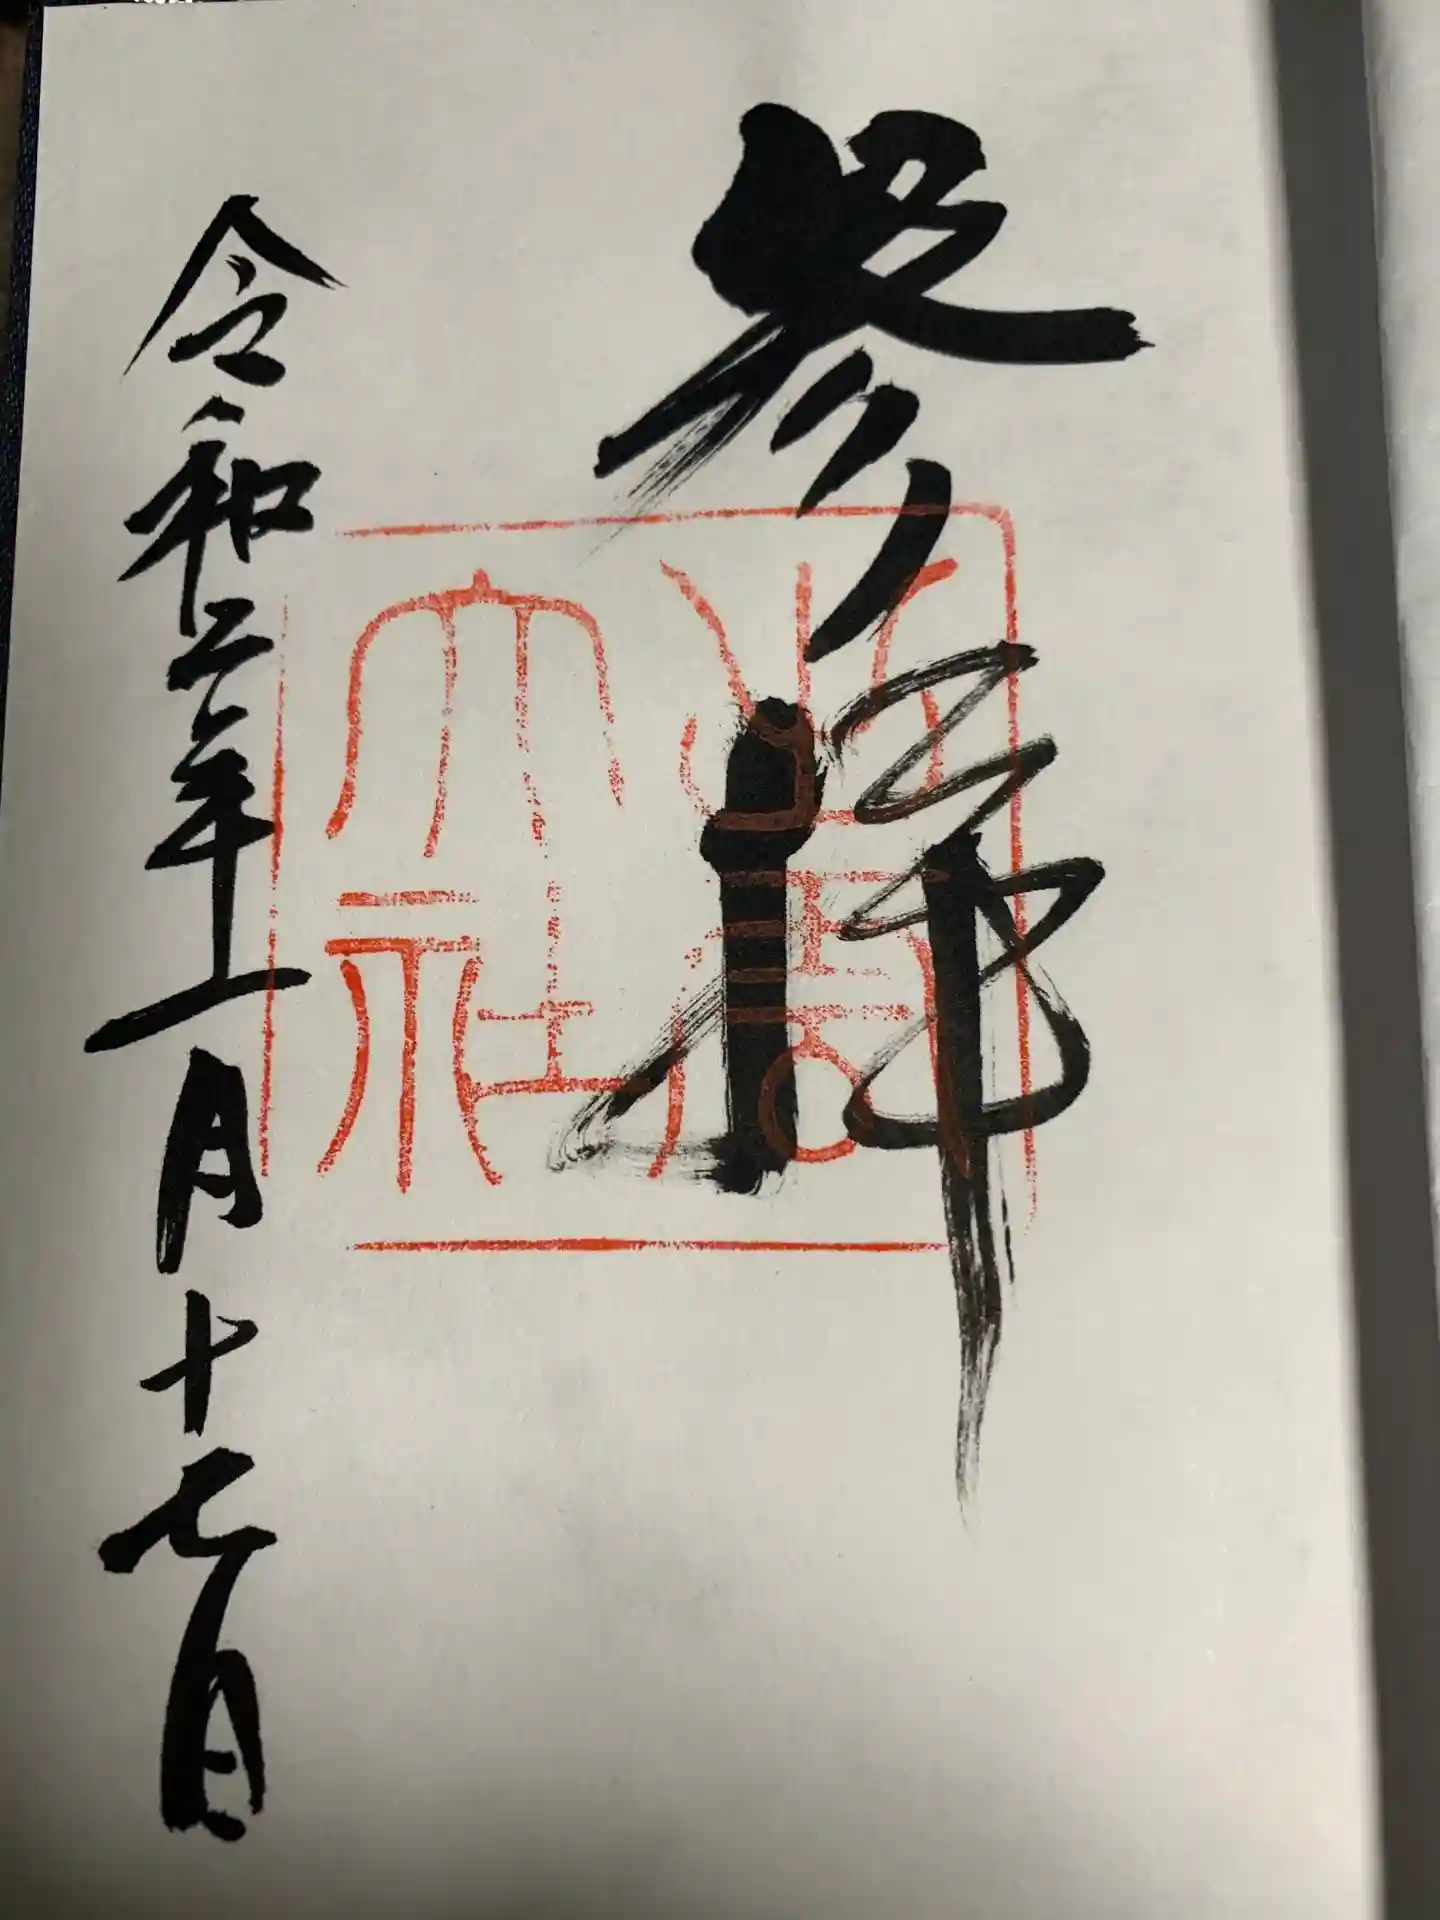 参拝
出雲
大社
令和二年一月十七日